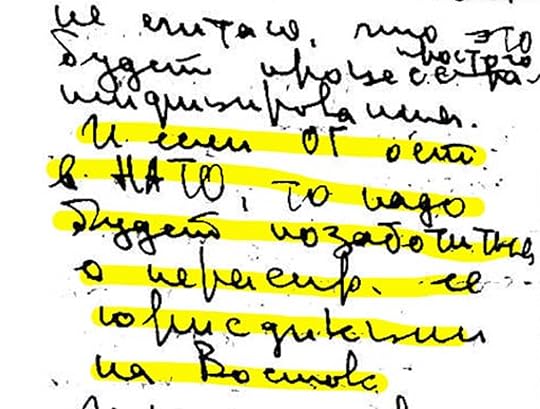 не считаю, что это
простого
будет процесс ра-
тифицирования.
И если ОГ ост.
в НАТО, то надо
будет позаботиться
о нераспр. ее
юрисдикции
на Восток